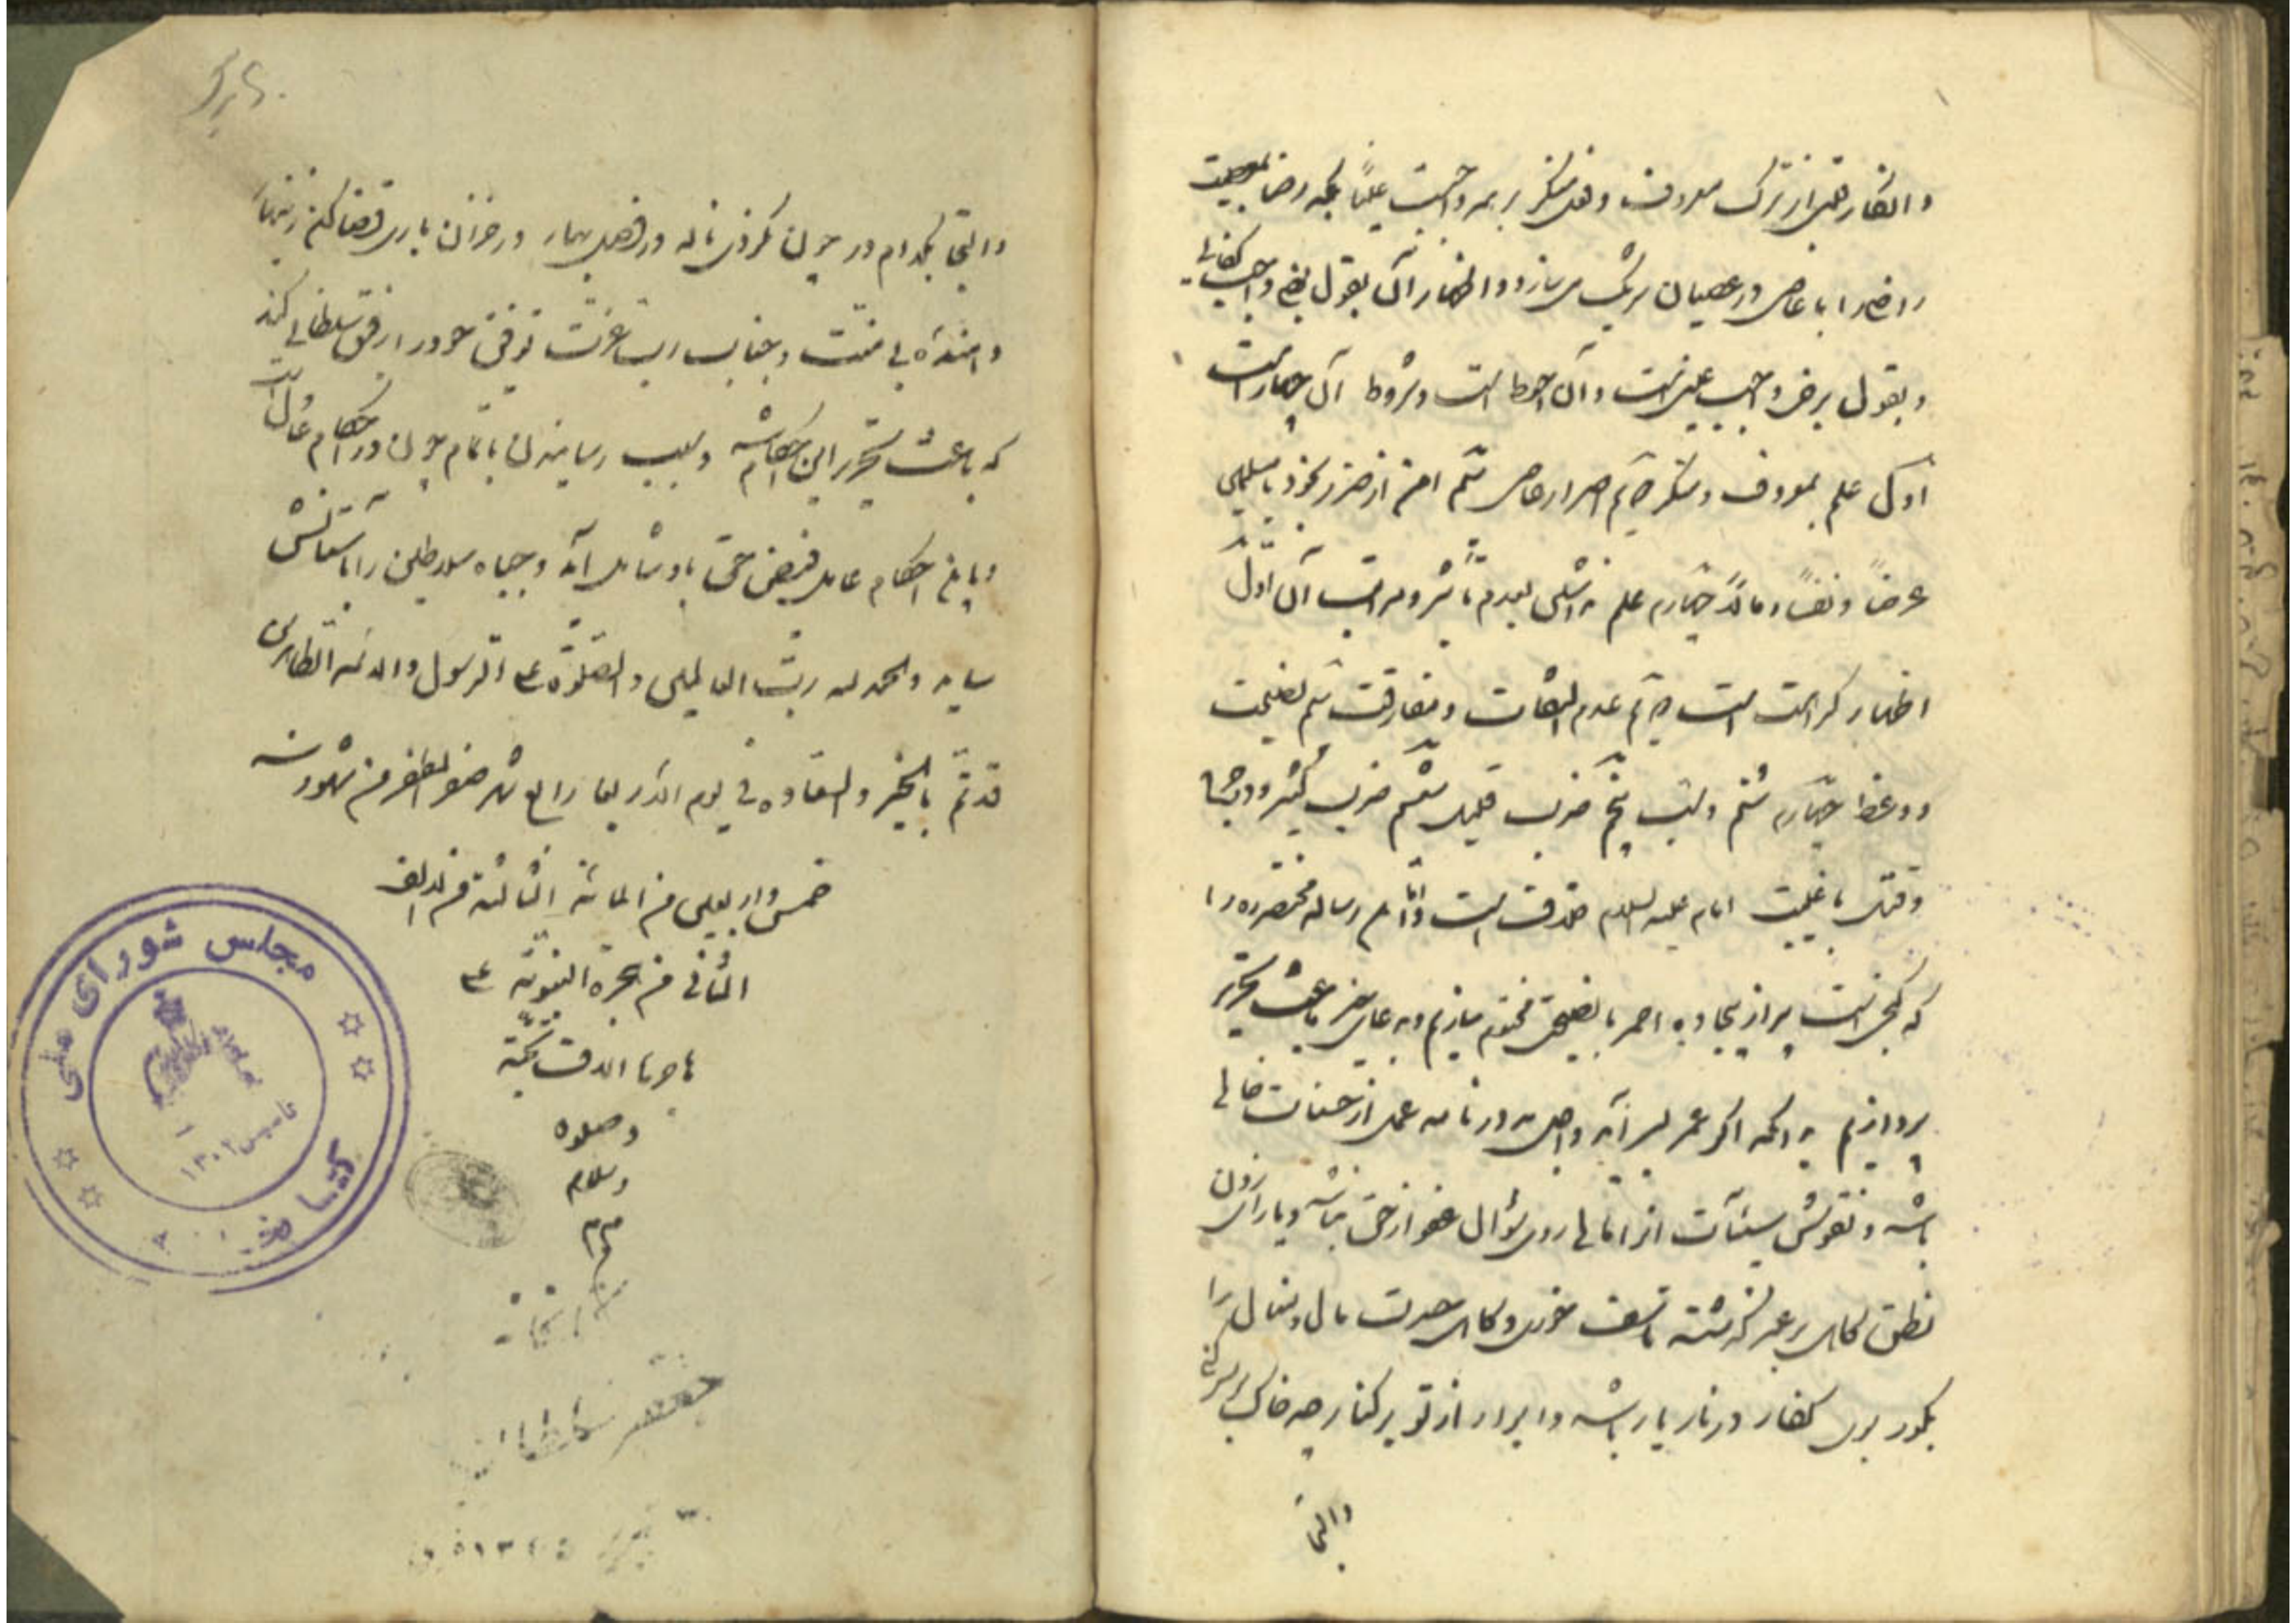 و انکار قلبی از ترک معروف و فعل منکر بر همه واجبست علینا بلکه رضا بمعصیت
راضی را با عاصی در عصیان شریک می سازد و اظهار آن بقول بعضی واجب کفائی
و بقول برخی واجب عینی است و آن احوط است و شروط آن چهار است
اول علم بمعروف و منکر دویم اصرار عاصی سیم امن از ضرر بخود یا مسلمی
عرضاً و نفساً و مالاً چهارم علم نداشتن بعدم تأثیر و مراتب آن اول
اظهار کراهت است دویم عدم التفات و مفارقت سیم نصیحت
و وعظ چهارم شتم و سب پنجم ضرب قلیل ششم ضرب کثیر و در جرح
و قتل با غیبت امام علیه السلام توقف است و اتمام رساله مختصره را
که گنجی است پر از بیجاده احمر بنصیحتی مختوم سازیم و بدعای خیر باعث تحریر
پردازیم بدانکه اگر عمر بسر آید و اجل بدر نامه عمل از حسنات خالی
باشد و نقوش سیئآت از آمالی روی سؤال عفو از حق نباشد و یارای زدن
نطق گاهی بر عمر گذشته تأسف خوری و گاهی حسرت مال و منال را
بگور بری کفار در نار یار باشد و ابرار از تو بر کنار چه خاک بر سر کنی
والتجا
والتجا بکدام در چون نکردی ناله در فصل بهار در خزان باری قضا کن زینهار
و المنة بی منت و جناب رب عزت توفیق خود را رفیق سلطانی کند
که باعث تحریر این احکام شد و سبب رسانیدن باتمام چون در احکام عدل
و ابلاغ احکام عامل فیض حق باو شامل آید و جباه سلاطین را بآستانش
ساید والحمد لله رب العالمین والصلوة علی الرسول والائمه الطاهرین
قد تم بالخیر والسعاده فی یوم الاربعا رابع شهر صفر المظفر من شهور سنه
خمس واربعین من المائة الثالثة من الالف
الثانی من هجرة النبویة علی
هاجرها الاف تحیة
وصلوة
وسلام
مم
جعفر سلطان
مجلس شورای ملی
کتابخانه
تأسیس ۱۳۰۲